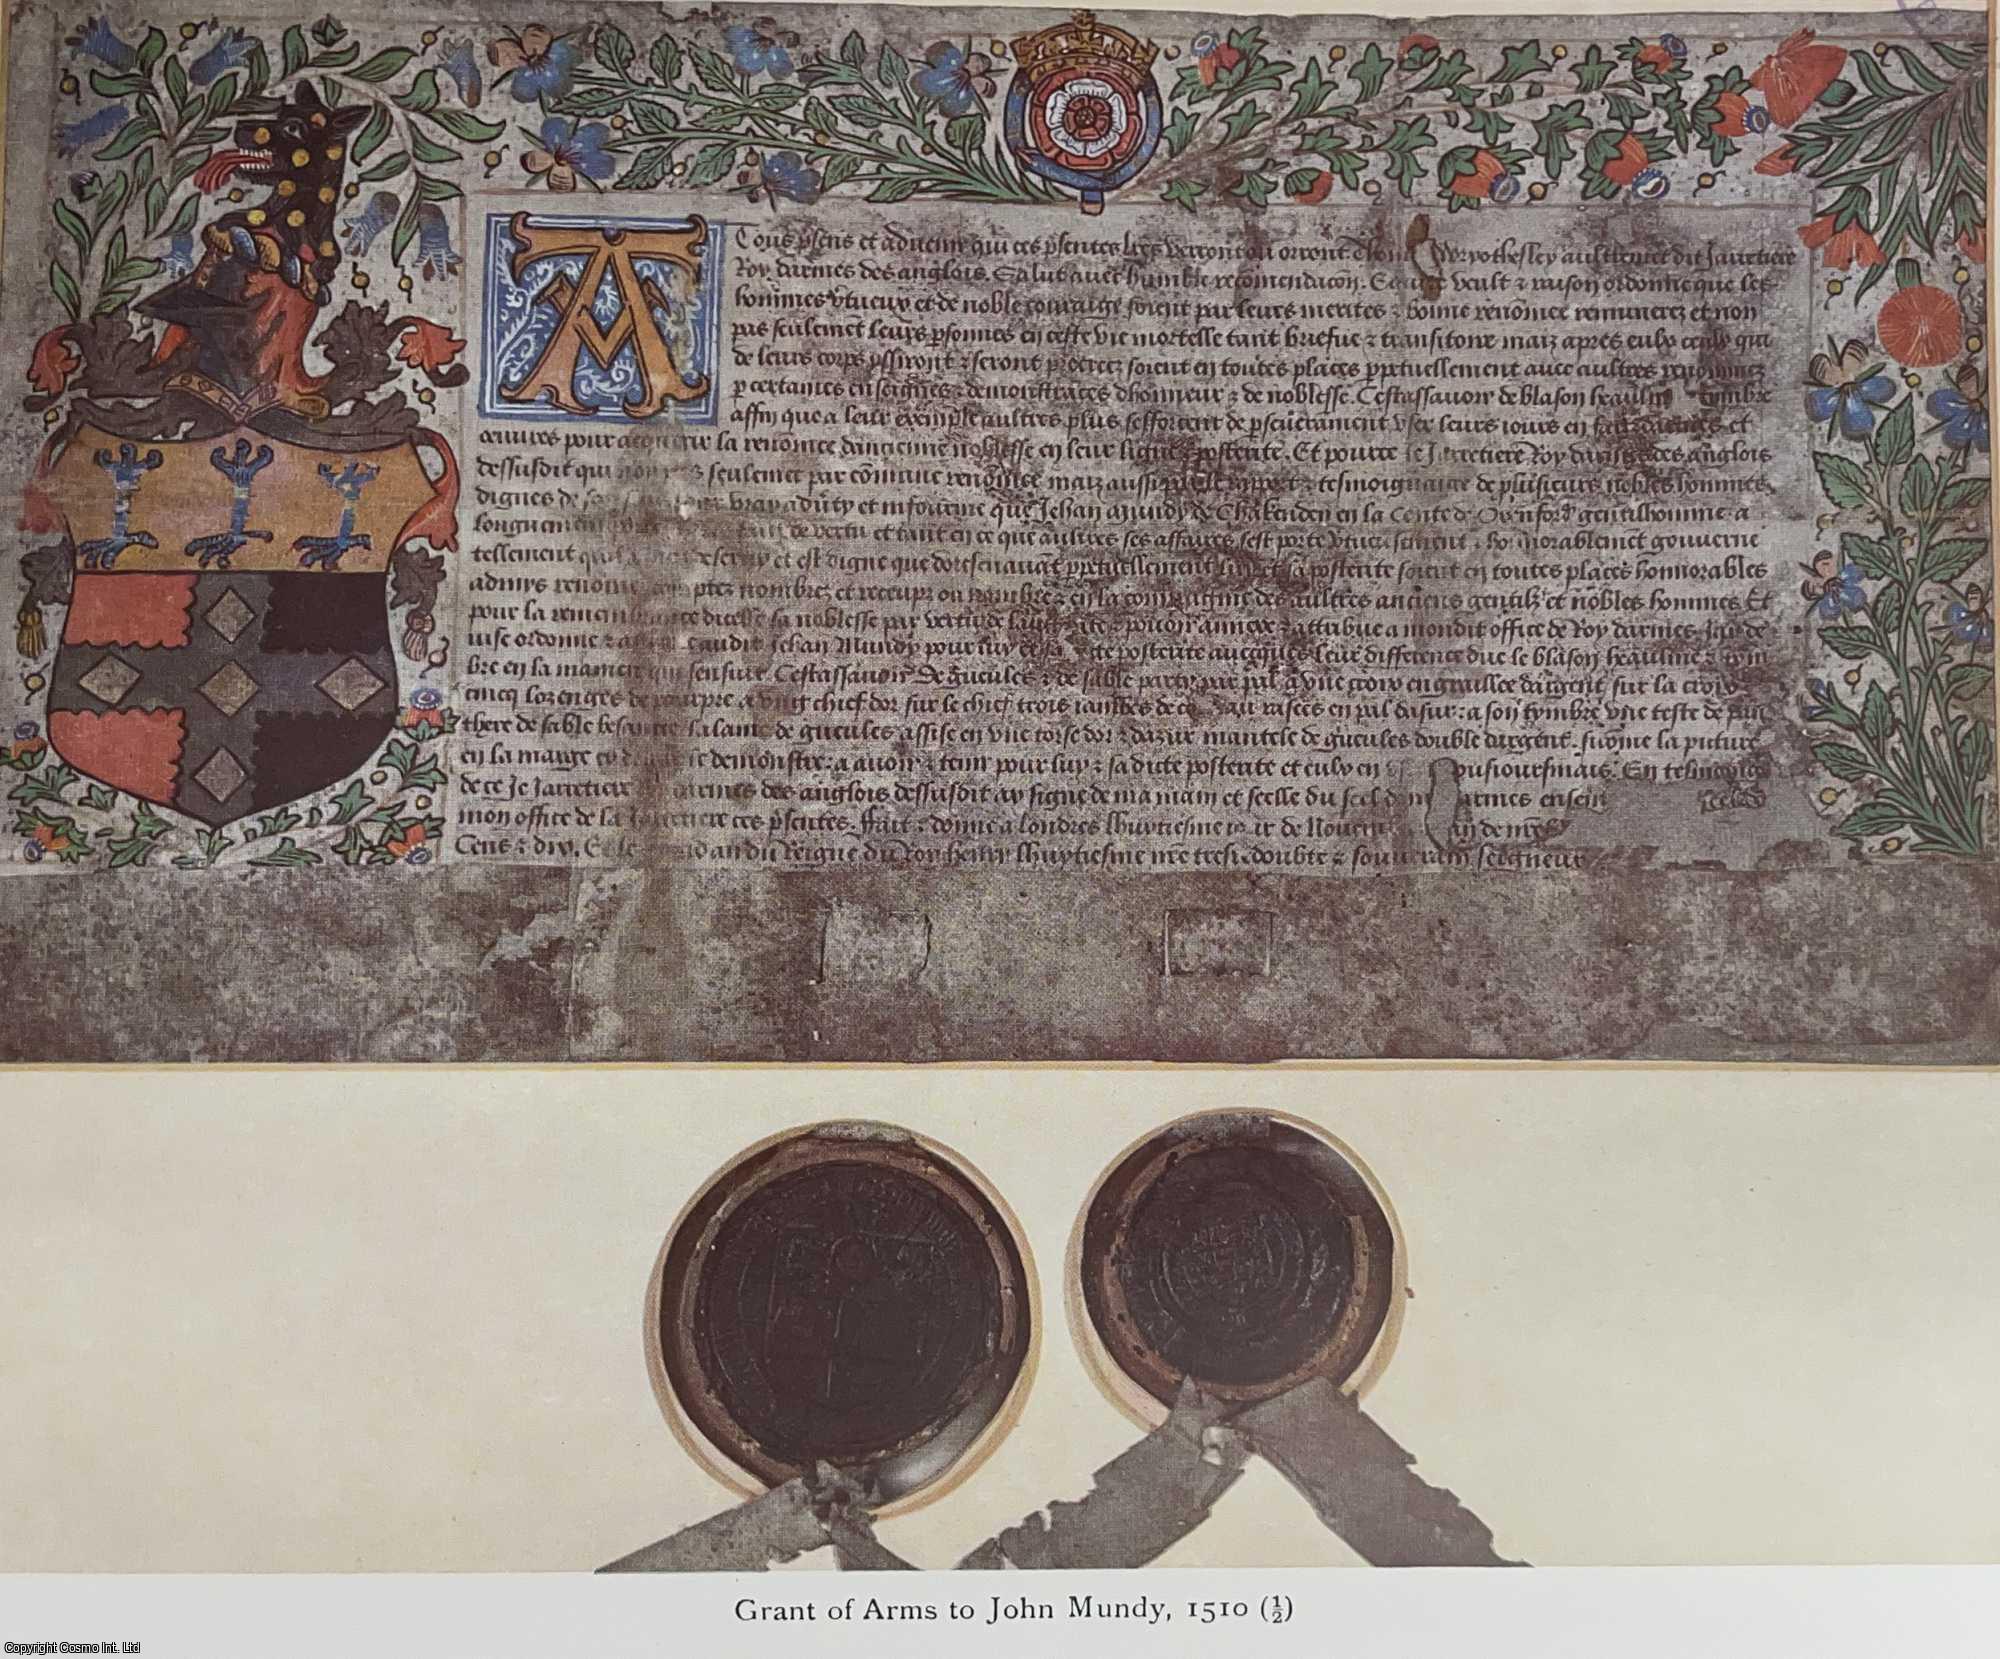 A Tous pñs et advenir qui ces pñtes lr̃es verront ou orront Thomas Wryothesley aultremet dit Jarretiere
Roy darmes des anglois. Salut avec humble recomendacõn. Equite veult & raison ordonne que les
hommes vr̃tueux et de noble couraige soient par leurs merites & bonne renõmee remunerez et non
pas seulemẽt leurs psonnes en ceste vie mortelle tant briefue & transitoire maiz apres eulx ceulx qui
de leurs corps yssiront & seront procreez soient en toutes places ppetuellement avec aultres renommez
p certaines enseignes & demonstrãces dhonneur & de noblesse. Cestassavoir de blason heaulme tymbre
affin que a leur exemple aultres plus sefforcent de pseuerãment vser leurs iours en faitz darmes et
œuures pour acquerir la renõmee dancienne noblesse en leur ligne & posterite. Et pource Je Jarretiere Roy darmes des anglois
dessusdit qui non seulemet par cõmune renõmee maiz aussi par le raport & tesmoignaige de plusieurs nobles hommes
dignes de foy vray aduty et infourme que Jehan Mundy de Chakenden en la Conte Oxinford gentilhomme a
longuement de vertu et tant en ce que aultres ses affaires sest porte vr̃tueusement & honnorablemet gouuerne
tellement qui et est digne que doresenauãt ppetuellement luy et sa posterite soient en toutes places honnorables
admys renõme comptez nombrez et receupz ou nombre & en la compaignie des aultres anciens gentilz et nobles hommes Et
pour la remembrance dicelle sa noblesse par vertu de lauctorite & pouoir annexe & attribue a mondit office de Roy darmes Jay de
uise ordonne & audit Jehan Mundy pour luy et sa dicte posterite auecques leur difference due le blason heaulme & tym
bre en la maniere qui sensuit Cestassauoir De gueules & de sable party par pal a vne croix engraillee dargent sur la croix
cincq lozenges de pourpre a vng chief dor sur le chief trois iambes de rasees en pal dasur: a son tymbre vne teste de pan
there de sable besantee de gueules assise en vne torse dor & dazur mantele de gueules double dargent. sicõme la picture
en la marge cy demonstre: a auoir & tenir pour luy & sa dicte posterite et eulx en pousiourmais. En tesmoing
de ce Je Jarretiere darmes des anglois dessusdit ay signe de ma main et seelle du seel armes
mon office de la Jarretiere ces pñtes. ffait & donne a londres lhuytiesme iour de Nouem
Cens & dix. Et le an du Reigne du Roy henry lhuytiesme nr̃e tresredoubte & souuerain seigneur
Grant of Arms to John Mundy, 1510 (½)
Copyright Cosmo Int. Ltd